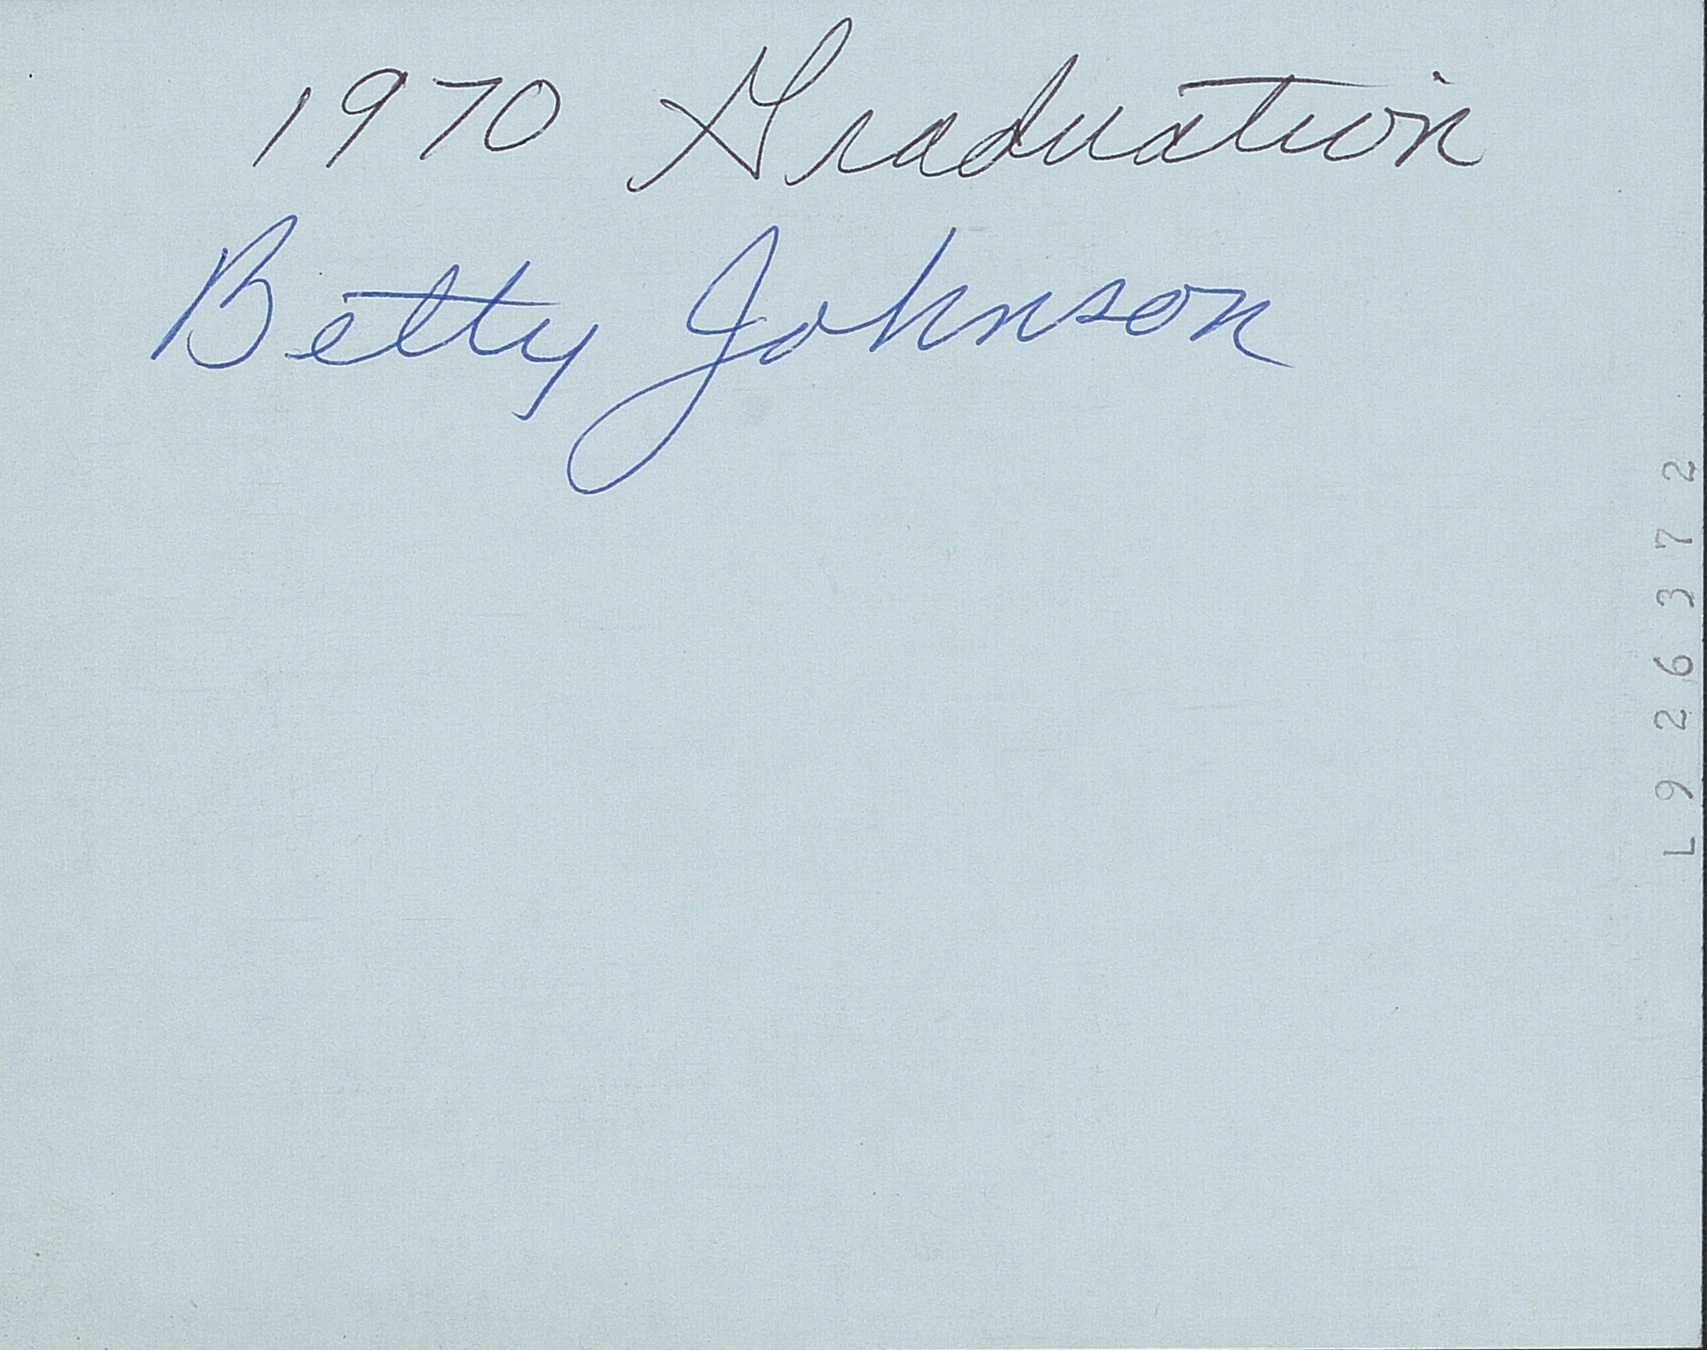 1970 Graduation
Betty Johnson
L926372